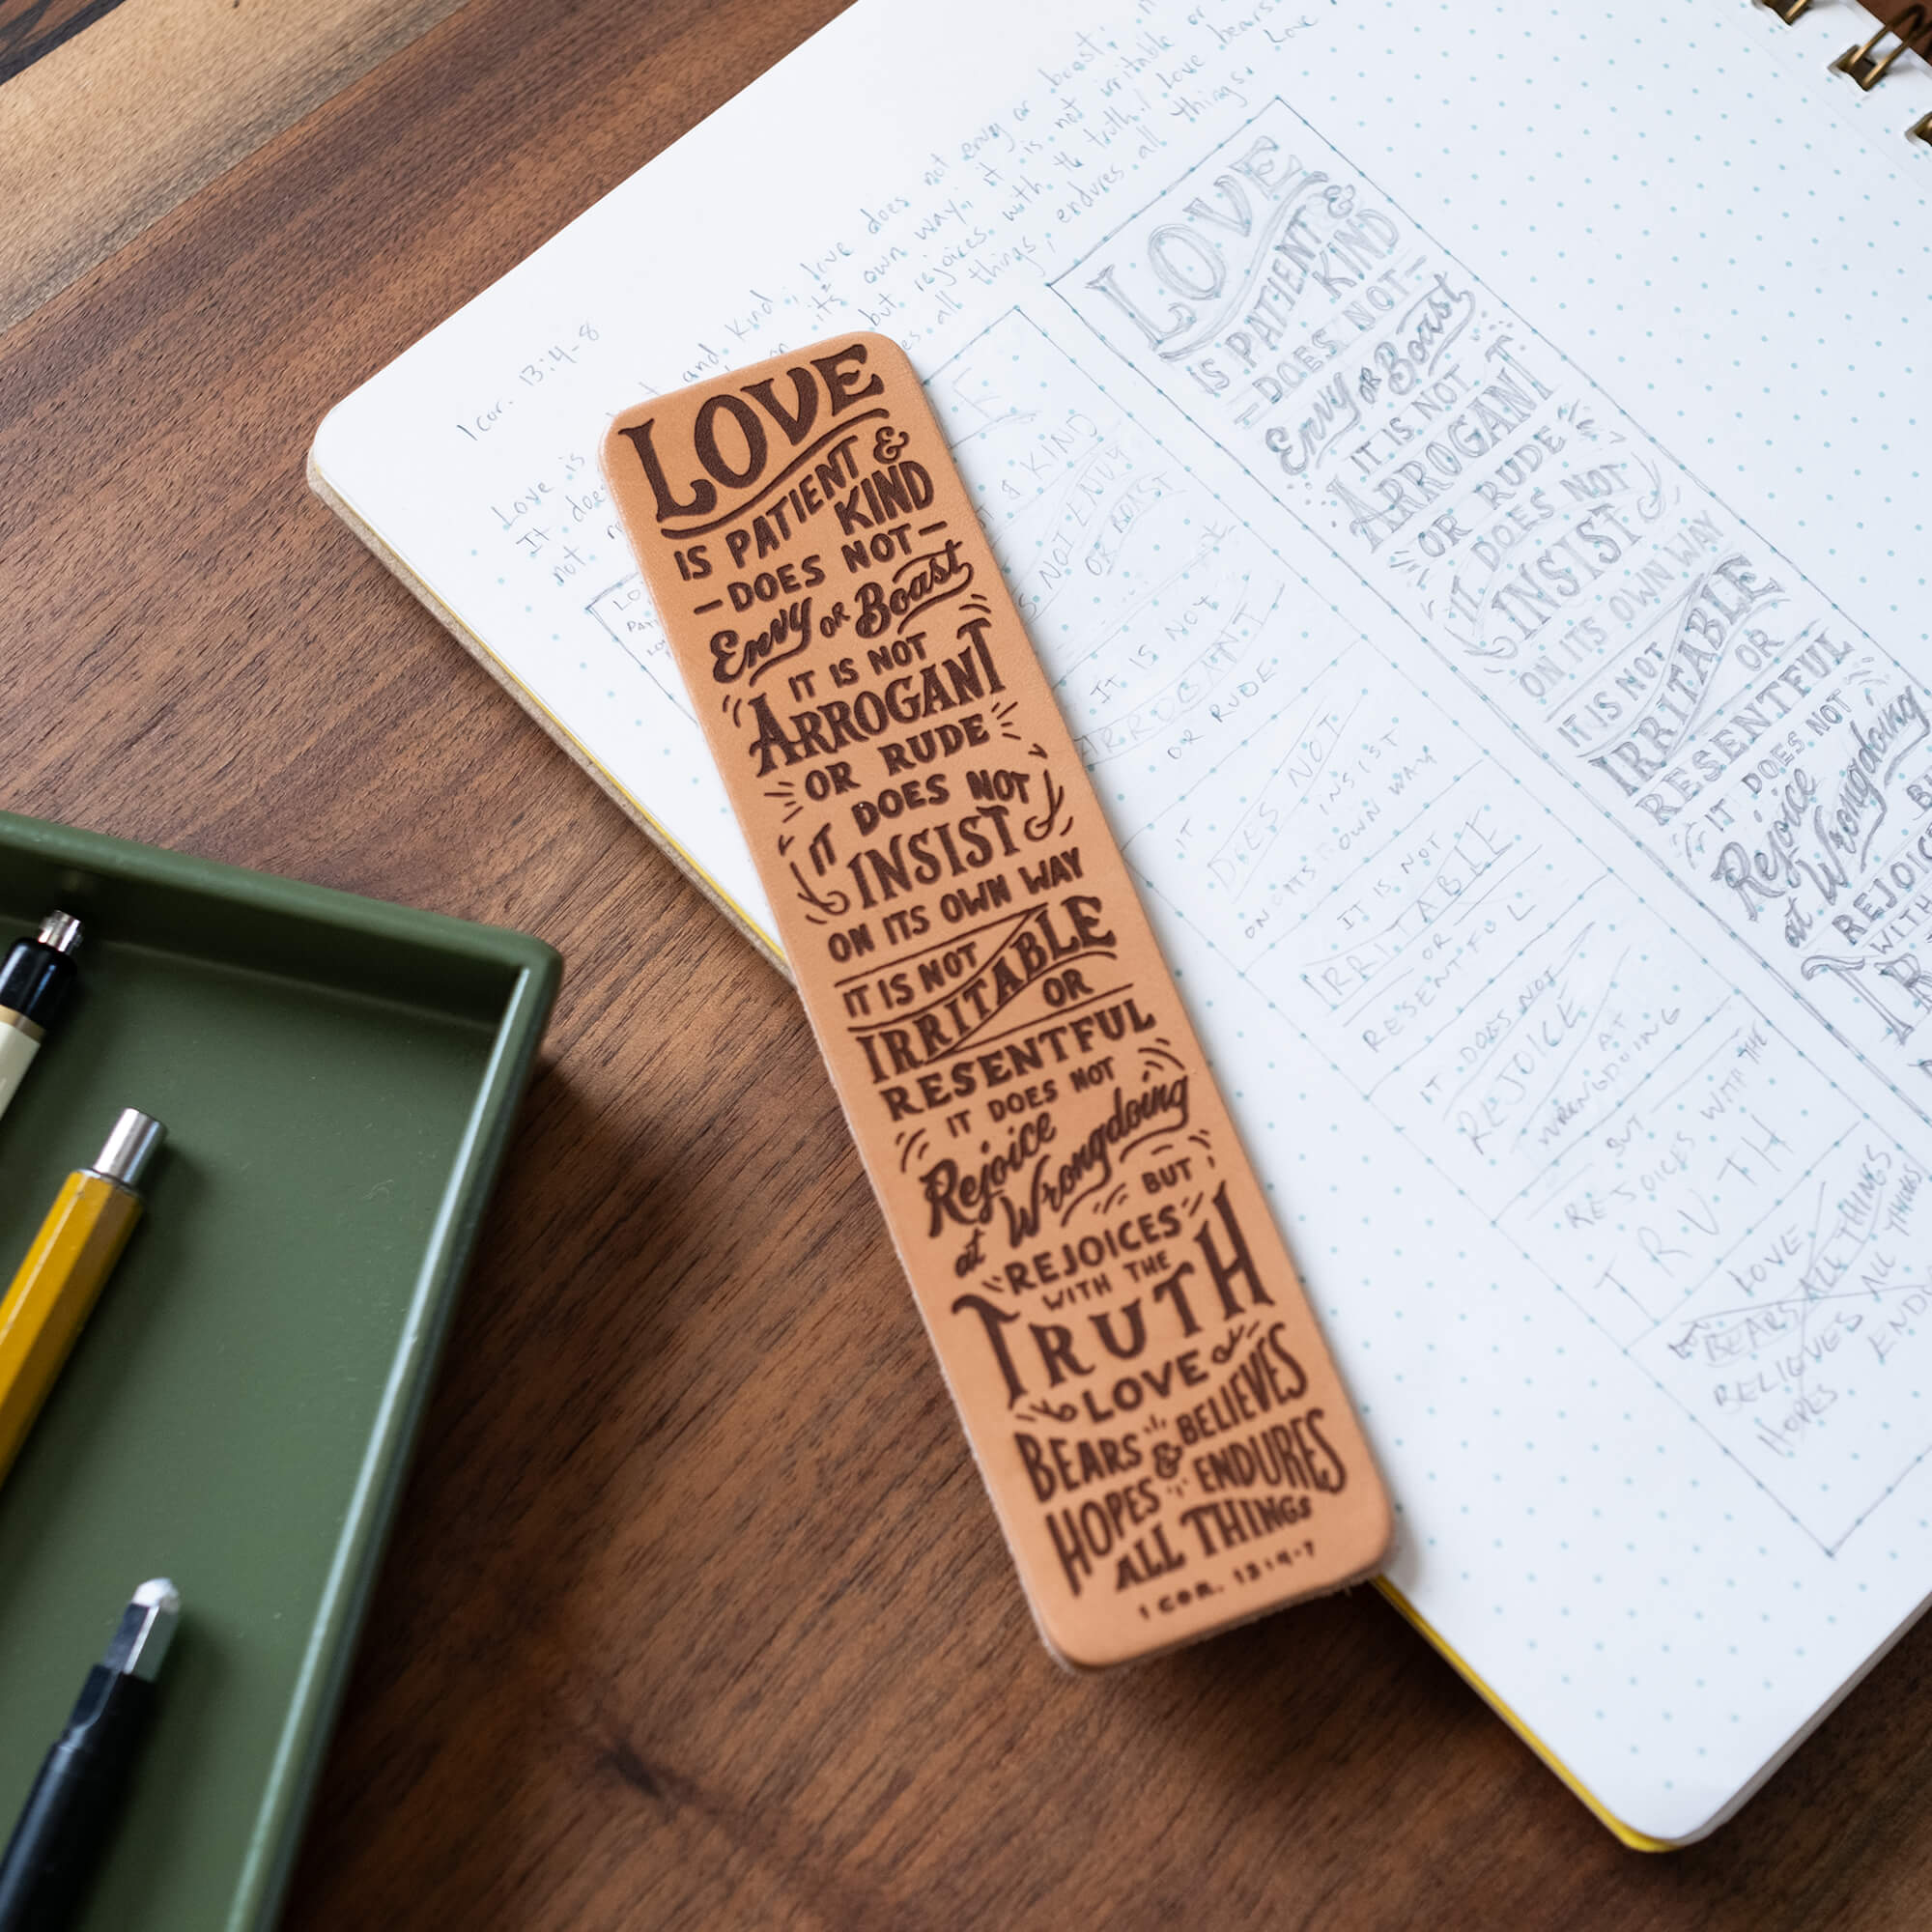 LOVE
IS PATIENT &
KIND
DOES NOT
Envy OR Boast
IT IS NOT
ARROGANT
OR RUDE
IT DOES NOT
INSIST
ON ITS OWN WAY
IT IS NOT
IRRITABLE
OR
RESENTFUL
IT DOES NOT
Rejoice
at Wrongdoing
BUT
REJOICES
WITH THE
TRUTH
LOVE
BEARS & BELIEVES
HOPES ENDURES
ALL THINGS
1 COR. 13:4-7
1 cor. 13:4-8
Love is and kind, love does not envy or boast;
It does its own way; it is not irritable or
not but rejoices with th truth. love bears
all things, endures all things.
Love
LOVE
IS PATIENT &
KIND
DOES NOT
Envy OR Boast
IT IS NOT
ARROGANT
OR RUDE
IT DOES NOT
INSIST
ON ITS OWN WAY
IT IS NOT
IRRITABLE
OR
RESENTFUL
IT DOES NOT
Rejoice
at Wrongdoing
REJOIC
WITH
& KIND
NOT ENVY
OR BOAST
IT IS NOT
ARROGANT
OR RUDE
IT
DOES NOT
INSIST
ON ITS OWN WAY
IT IS NOT
IRRITABLE
OR
RESENTFUL
IT DOES NOT
REJOICE
AT
WRONGDOING
BUT
REJOICES WITH THE
TRUTH
LOVE
BEARS ALL THINGS
BELIEVES ALL THINGS
HOPES